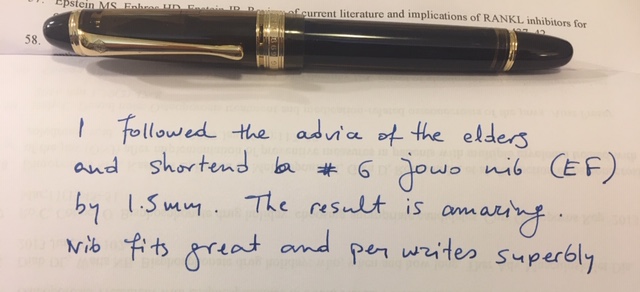 Epstein MS, Ephros HD, Epstein JB. Review of current literature and implications of RANKL inhibitors for
58.
I followed the advice of the elders
and shortend a # 6 jowo nib (EF)
by 1.5mm. The result is amazing.
Nib fits great and pen writes superbly